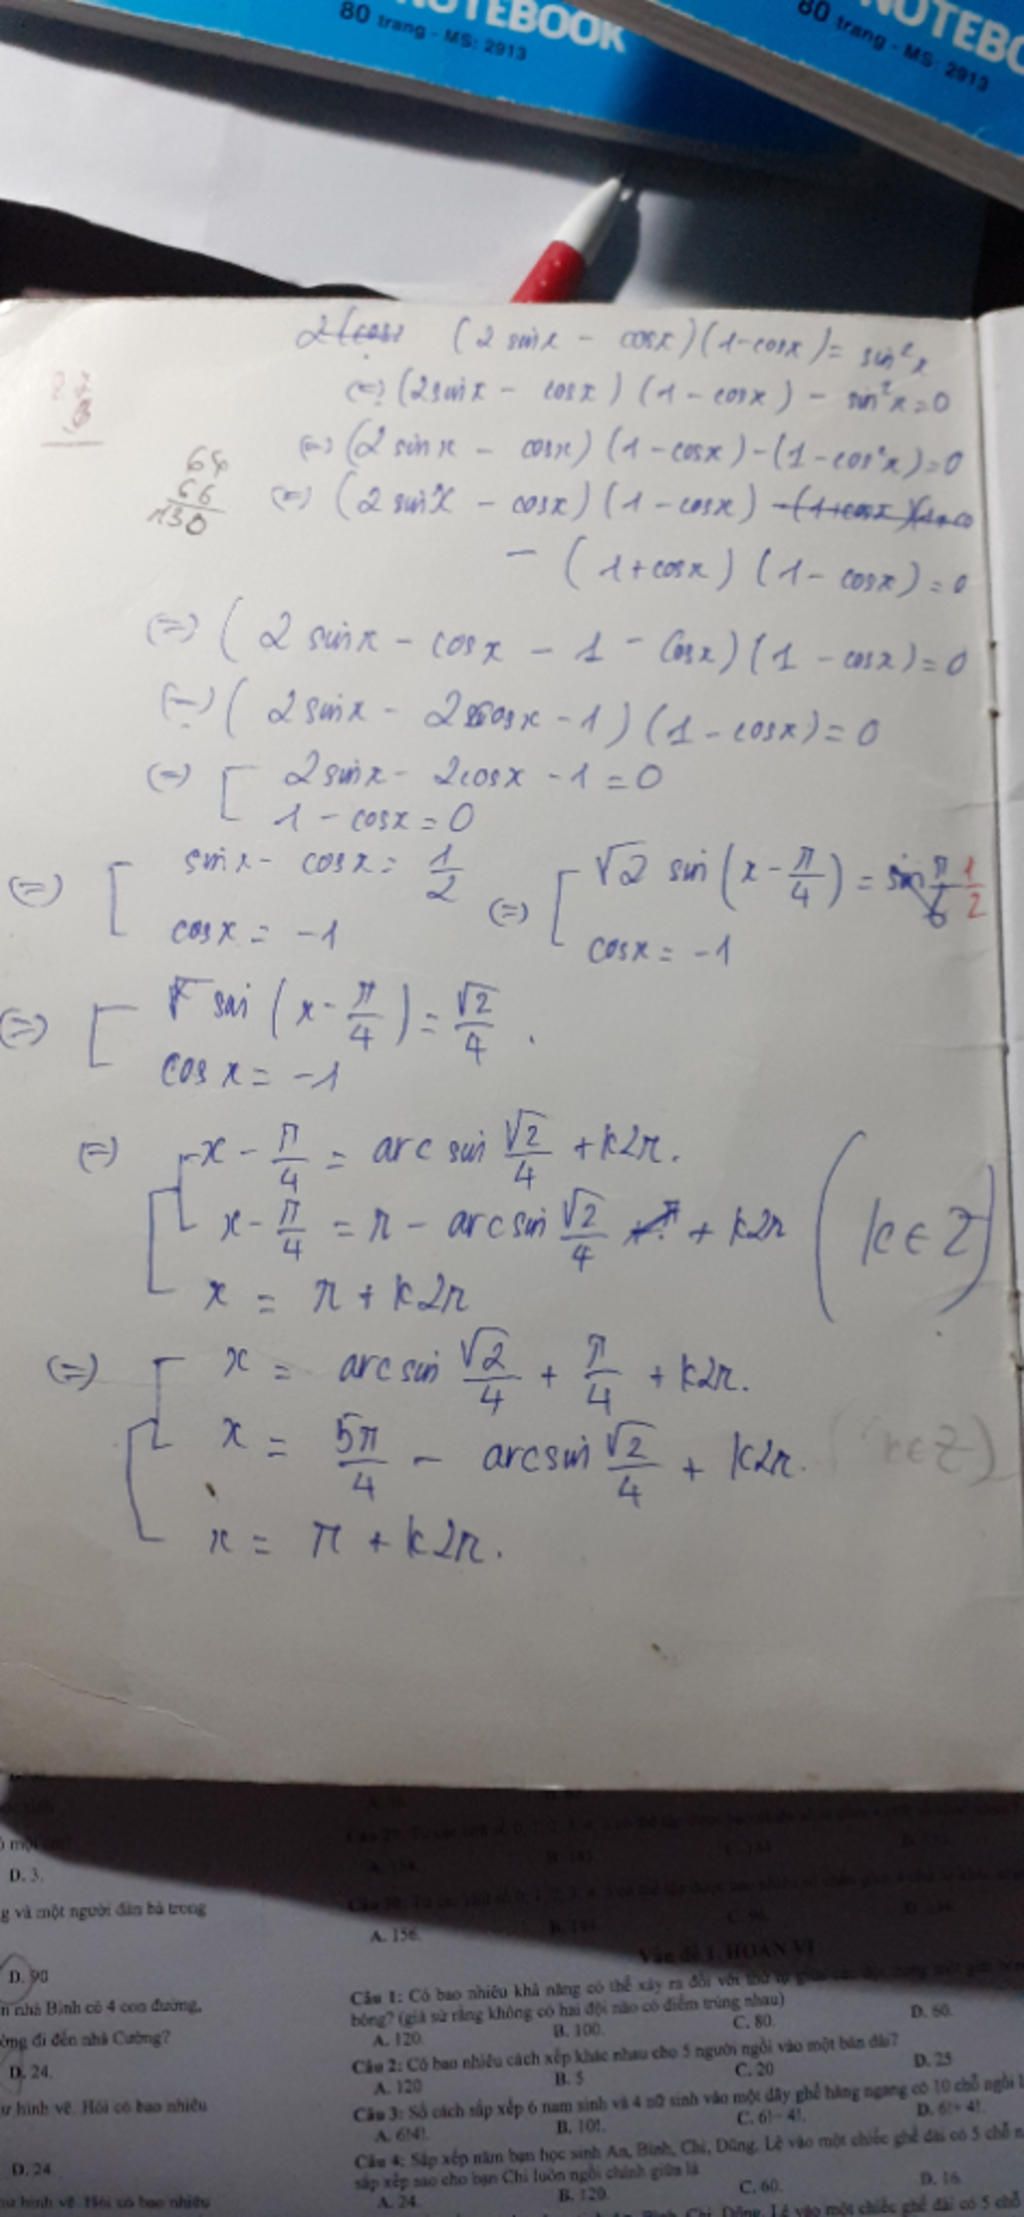 NOTEBOOK
80 trang - MS: 2913
NOTEBO
80 trang - MS: 2913
(2 sinx - cosx)(1-cosx) = sin²x
(=) (2sinx - cosx) (1 - cosx) - sin²x = 0
(=) (2 sinx - cosx) (1 - cosx) - (1 - cos²x) = 0
64
66
130
(=) (2 sinx - cosx) (1 - cosx)
- (1+cosx) (1 - cosx) = 0
(=) (2 sinx - cosx - 1 - cosx) (1 - cosx) = 0
(=) (2sinx - 2cosx - 1) (1 - cosx) = 0
(=) [ 2sinx - 2cosx - 1 = 0
1 - cosx = 0
(=) [ sinx - cosx = 1/2
cosx = -1
(=) [ √2 sin (x - π/4) = 1/2
cosx = -1
(=) [ sin (x - π/4) = √2/4 .
cosx = -1
(=) [ x - π/4 = arcsin √2/4 + k2π.
x - π/4 = π - arcsin √2/4 + k2π (k ∈ Z)
x = π + k2π
(=) [ x = arcsin √2/4 + π/4 + k2π.
x = 5π/4 - arcsin √2/4 + k2π. (k ∈ Z)
x = π + k2π.
D. 3.
g và một người đàn bà trong
D. 90
n nhà Bình có 4 con đường,
ờng đi đến nhà Cường?
D. 24.
ư hình vẽ. Hỏi có bao nhiêu
D. 24
ư hình vẽ. Hỏi có bao nhiêu
A. 156.
Vấn đề 1. HOÁN VỊ
Câu 1: Có bao nhiêu khả năng có thể xảy ra đối với thứ tự giữa các đội trong một giải bóng
bóng? (giả sử rằng không có hai đội nào có điểm trùng nhau)
A. 120. B. 100. C. 80. D. 60.
Câu 2: Có bao nhiêu cách xếp khác nhau cho 5 người ngồi vào một bàn dài?
A. 120 B. 5 C. 20 D. 25
Câu 3: Số cách sắp xếp 6 nam sinh và 4 nữ sinh vào một dãy ghế hàng ngang có 10 chỗ ngồi l
A. 6!4!. B. 10!. C. 6!- 4!. D. 6!+ 4!.
Câu 4: Sắp xếp năm bạn học sinh An, Bình, Chi, Dũng, Lệ vào một chiếc ghế dài có 5 chỗ n
sắp xếp sao cho bạn Chi luôn ngồi chính giữa là
A. 24. B. 120. C. 60. D. 16.
Bình, Chi, Dũng, Lệ vào một chiếc ghế dài có 5 chỗ